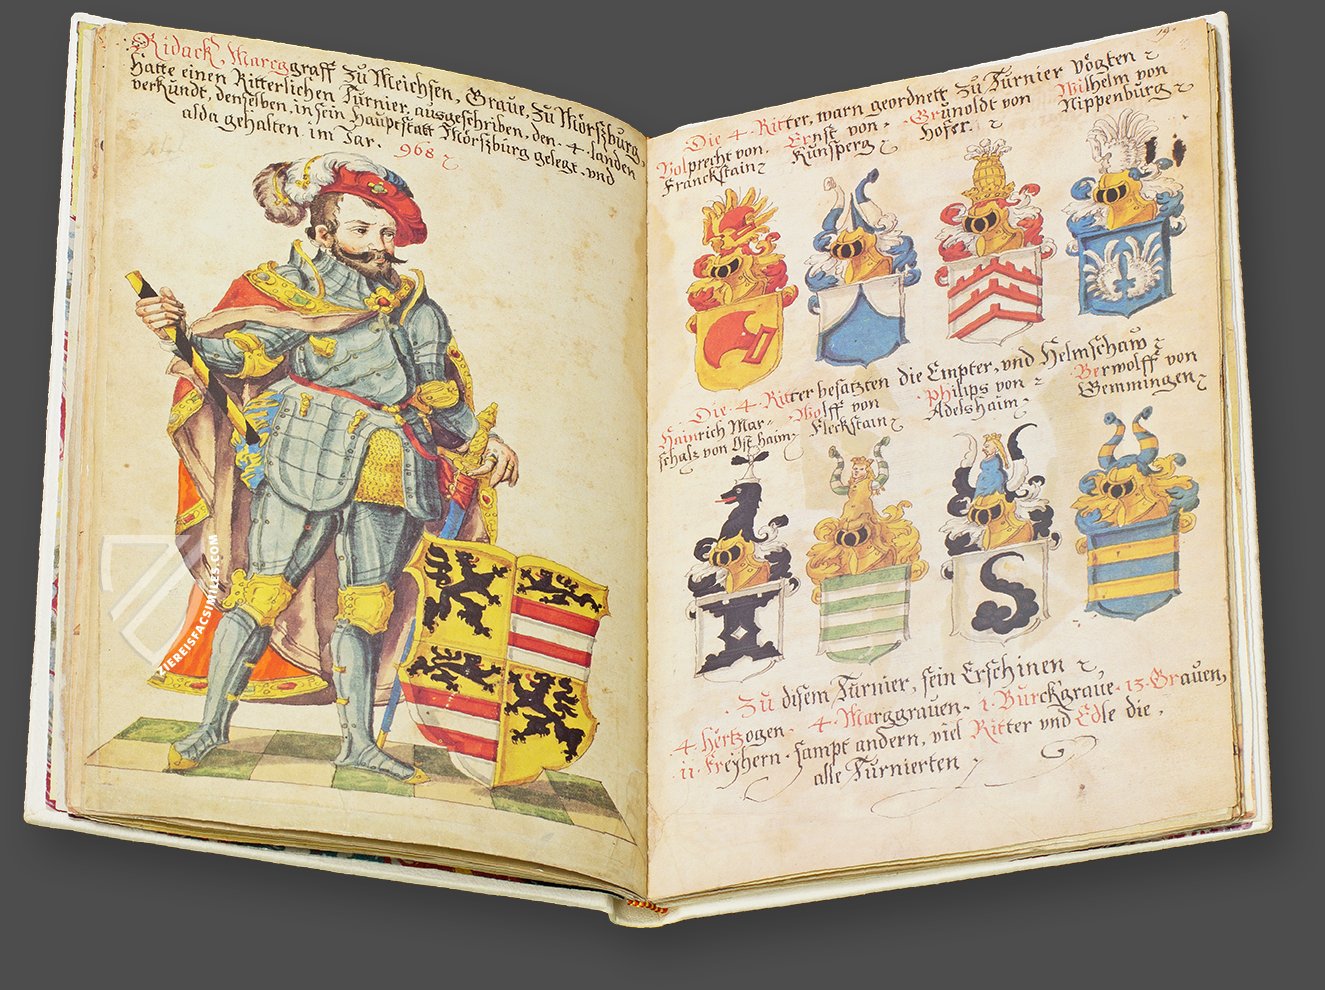 Ridack Marggraff zu Meichsen, Graue, zu Mörszburg,
Hatte einen Ritterlichen Turnier, ausgeschriben, den .4. landen
verkündt, denselben, in sein Hauptstatt Mörszburg gelegt, vnd
alda gehalten im Jar. 968
19.
Die .4. Ritter, warn geordnett zu Turnier vögten
Volprecht von Franckstain
Ernst von Künsperg
Grünoldt von Hofer.
Wilhelm von Nippenburg
Die .4. Ritter besatzten die Empter, vnd Helmschaw
Hainrich Mar-
schalz von Ost haim
Wolff von
Fleckstain
Philips von
Adelshaim
Berwolff von
Gemmingen
Zu disem Turnier, sein Erschinen
4. Hertzogen. 4. Marggrauen. 1. Burckgraue. 13. Grauen,
11. Freyhern. sampt andern, viel Ritter vnd Edle die,
alle Turnierten
ZIEREISFACSIMILES.COM